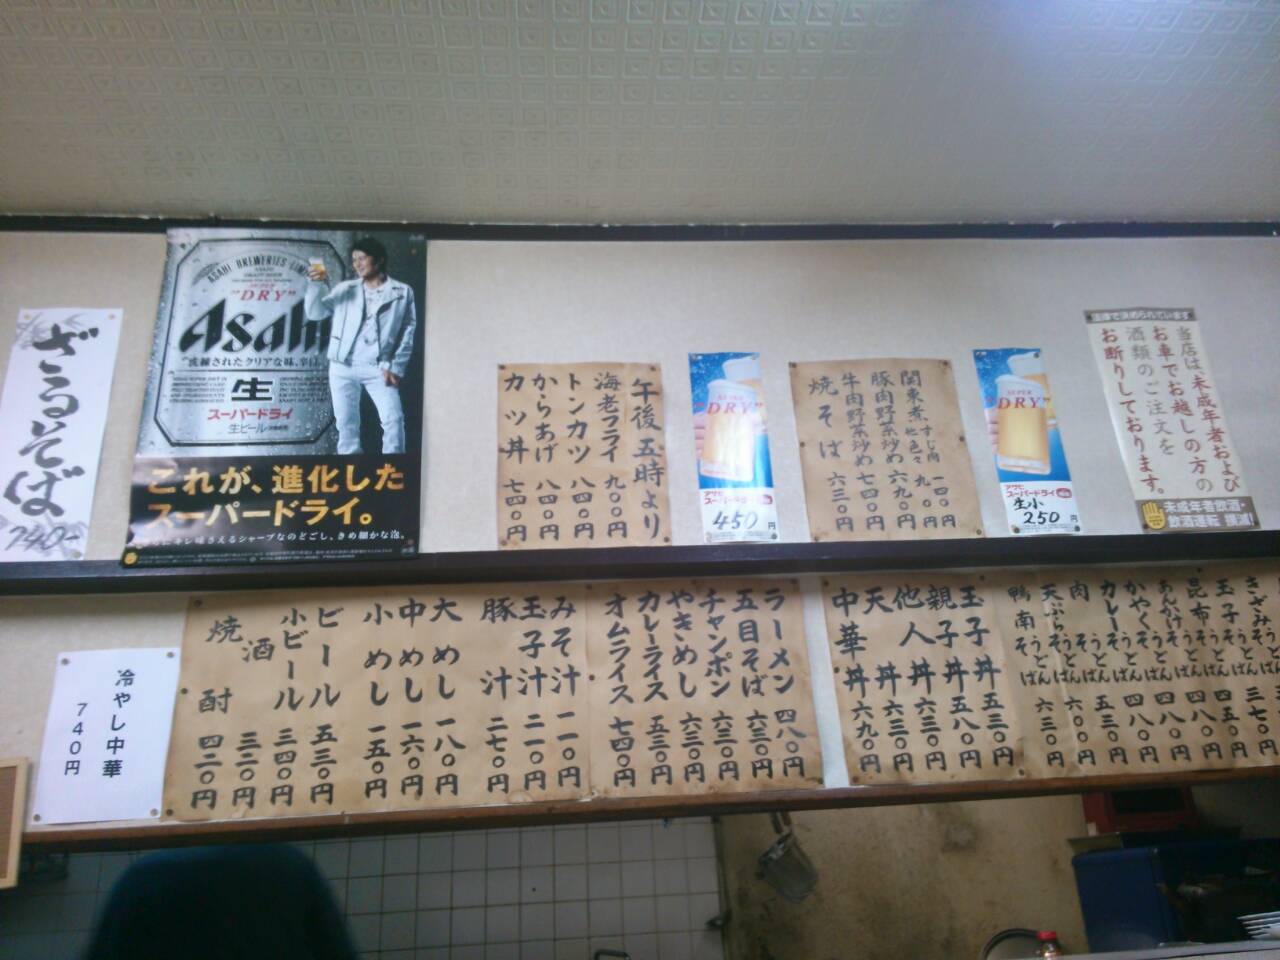 ざるそば
740-
ASAHI BREWERIES LIMITED
SUPER
"DRY"
Asahi
洗練されたクリアな味、辛口
生
スーパードライ
生ビール
これが、進化した
スーパードライ。
きめ細かな泡。
午後五時より
海老フライ 九〇〇円
トンカツ 八四〇円
からあげ 八四〇円
カツ丼 七四〇円
SUPER
"DRY"
アサヒ
スーパードライ
450円
関東煮 すじ肉 一四〇円
他色々 九〇円
豚肉野菜炒め 六九〇円
牛肉野菜炒め 七四〇円
焼そば 六三〇円
SUPER
"DRY"
アサヒ
スーパードライ
生小
250円
法律で決められています
当店は未成年者および
お車でお越しの方の
酒類のご注文を
お断りしております。
未成年者飲酒・
飲酒運転 撲滅!
冷やし中華
740円
きざみ
玉子うどん そば
昆布うどん そば
あんかけうどん そば
かやくうどん そば 四八〇円
カレーうどん そば 五三〇円
肉うどん そば
天ぷらうどん そば
鴨南そば うどん 六三〇円
玉子丼 五三〇円
親子丼 五八〇円
他人丼 六三〇円
天丼 六三〇円
中華丼 六九〇円
ラーメン 四八〇円
五目そば 六三〇円
チャンポン 六三〇円
やきめし 六三〇円
カレーライス 五三〇円
オムライス 七四〇円
みそ汁 一一〇円
玉子汁 二一〇円
豚汁 二七〇円
大めし 一八〇円
中めし 一六〇円
小めし 一五〇円
ビール 五三〇円
小ビール 三四〇円
酒 三二〇円
焼酎 四二〇円